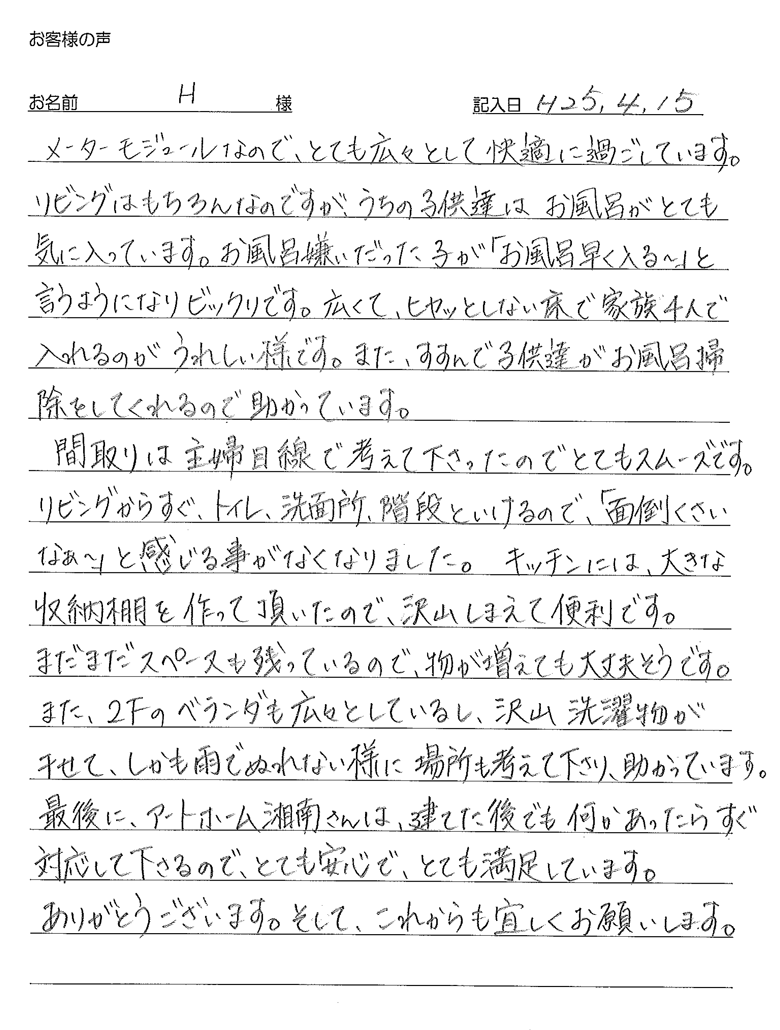 お客様の声
お名前 H 様 記入日 H25.4.15
メーターモジュールなので、とても広々として快適に過ごしています。
リビングはもちろんなのですが、うちの子供達は お風呂がとても
気に入っています。お風呂嫌いだった子が「お風呂早く入る〜」と
言うようになりビックリです。広くて、ヒヤッとしない床で家族4人で
入れるのが うれしい様です。また、すすんで子供達がお風呂掃
除をしてくれるので助かっています。
間取りは主婦目線で考えて下さったのでとてもスムーズです。
リビングからすぐ、トイレ、洗面所、階段といけるので、「面倒くさい
なぁ〜」と感じる事がなくなりました。 キッチンには、大きな
収納棚を作って頂いたので、沢山しまえて便利です。
まだまだスペースも残っているので、物が増えても大丈夫そうです。
また、2Fのベランダも広々としているし、沢山 洗濯物が
干せて、しかも雨でぬれない様に場所も考えて下さり、助かっています。
最後に、アートホーム湘南さんは、建てた後でも何かあったらすぐ
対応して下さるので、とても安心で、とても満足しています。
ありがとうございます。そして、これからも宜しくお願いします。